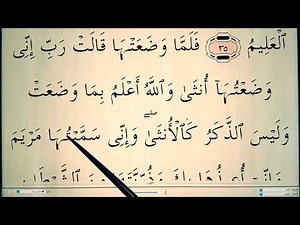 ٱلْعَلِيمُ ٣٥ فَلَمَّا وَضَعَتْهَا قَالَتْ رَبِّ إِنِّى
وَضَعْتُهَآ أُنثَىٰ وَٱللَّهُ أَعْلَمُ بِمَا وَضَعَتْ
وَلَيْسَ ٱلذَّكَرُ كَٱلْأُنثَىٰ ۖ وَإِنِّى سَمَّيْتُهَا مَرْيَمَ